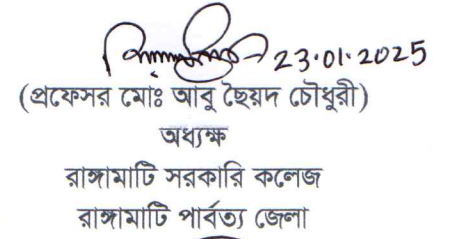 23.01.2025
(প্রফেসর মোঃ আবু ছৈয়দ চৌধুরী)
অধ্যক্ষ
রাঙ্গামাটি সরকারি কলেজ
রাঙ্গামাটি পার্বত্য জেলা